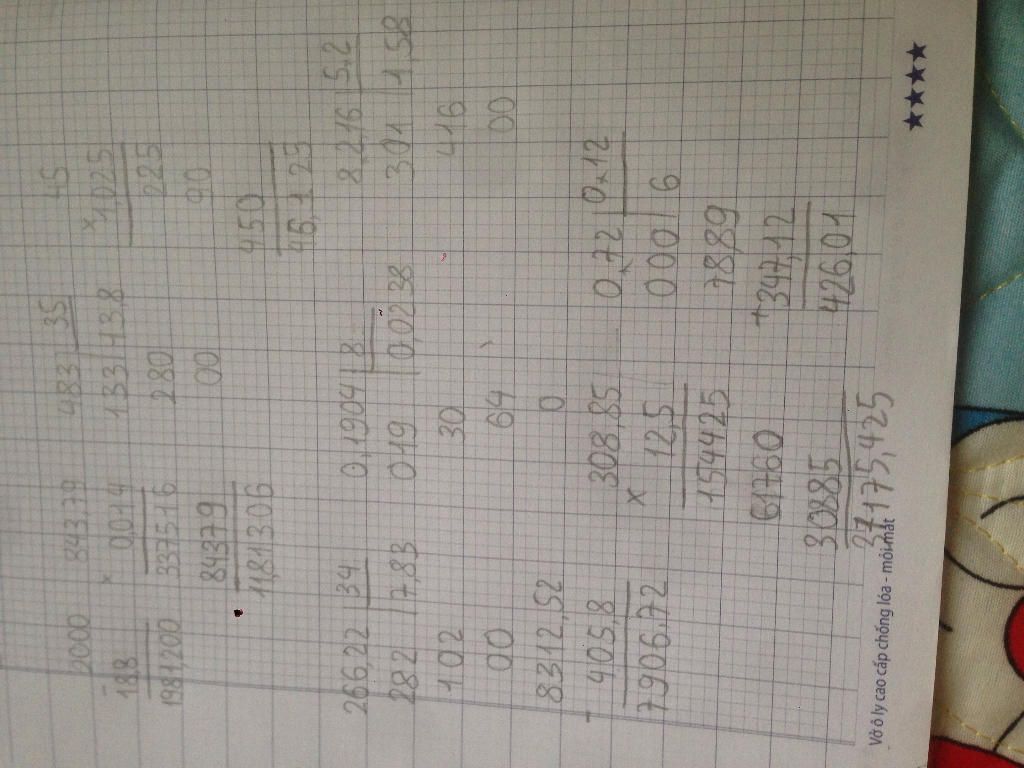 2000
- 18,8
1981,200
843,79
× 0,014
337516
84379
11,81306
483 | 35
133 | 13,8
280
00
45
× 1,025
225
90
450
46,125
266,22 | 34
282 | 7,83
102
00
0,1904 | 8
019 | 0,0238
30
64
0
8,2,16 | 5,2
301 | 1,58
416
00
8312,52
- 405,8
7906,72
308,85
× 12,5
154425
61760
30885
37175,425
0,72 | 0,12
000 | 6
78,89
+ 347,12
426,01
Vở ô ly cao cấp chống lóa - mỏi mắt